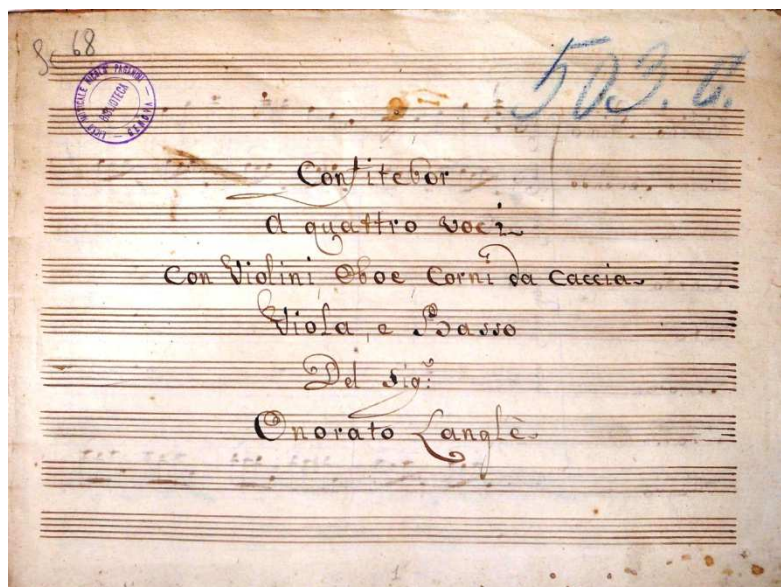 Sc 68
503. C.
LICEO MUSICALE NICOLÒ PAGANINI — GENOVA —
BIBLIOTECA
Confitebor
A quattro voci
Con Violini, Oboe, Corni da Caccia
Viola, e Basso
Del Sig.r
Onorato Langlè
1